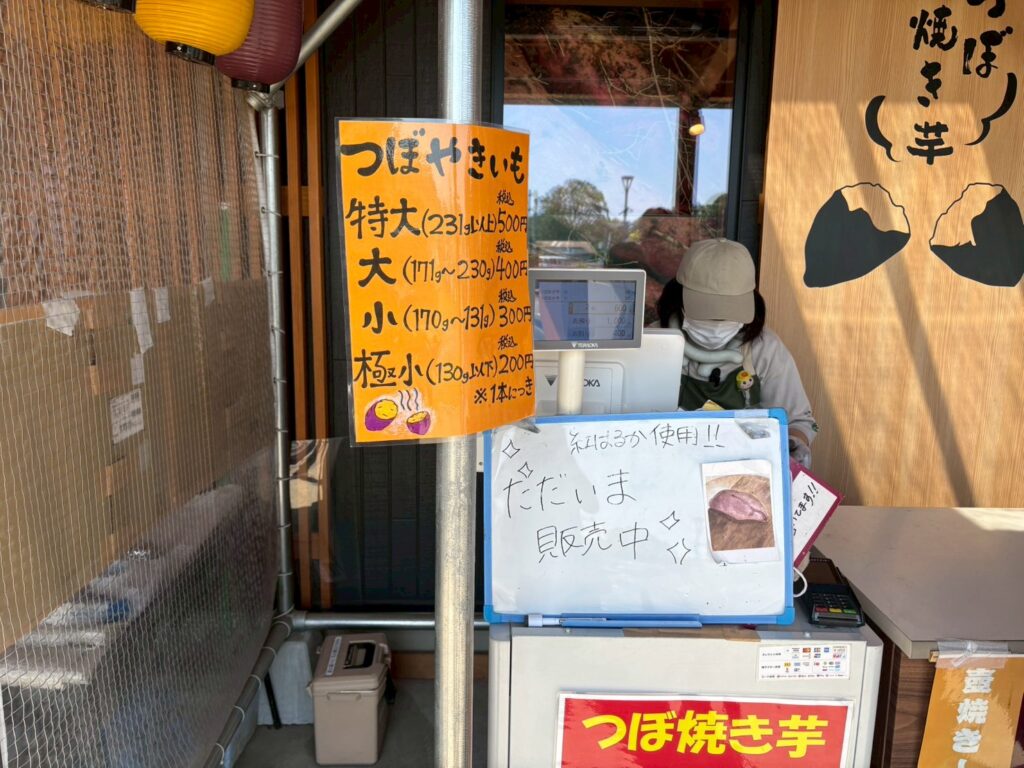 つぼやきいも
特大(231g以上)税込500円
大(171g～230g)税込400円
小(170g～131g)税込300円
極小(130g以下)税込200円
※1本につき
つぼ
焼き芋
600
1,000
400
TERAOKA
紅はるか使用!!
ただいま
販売中
てます!!
つぼ焼き芋
壺焼き